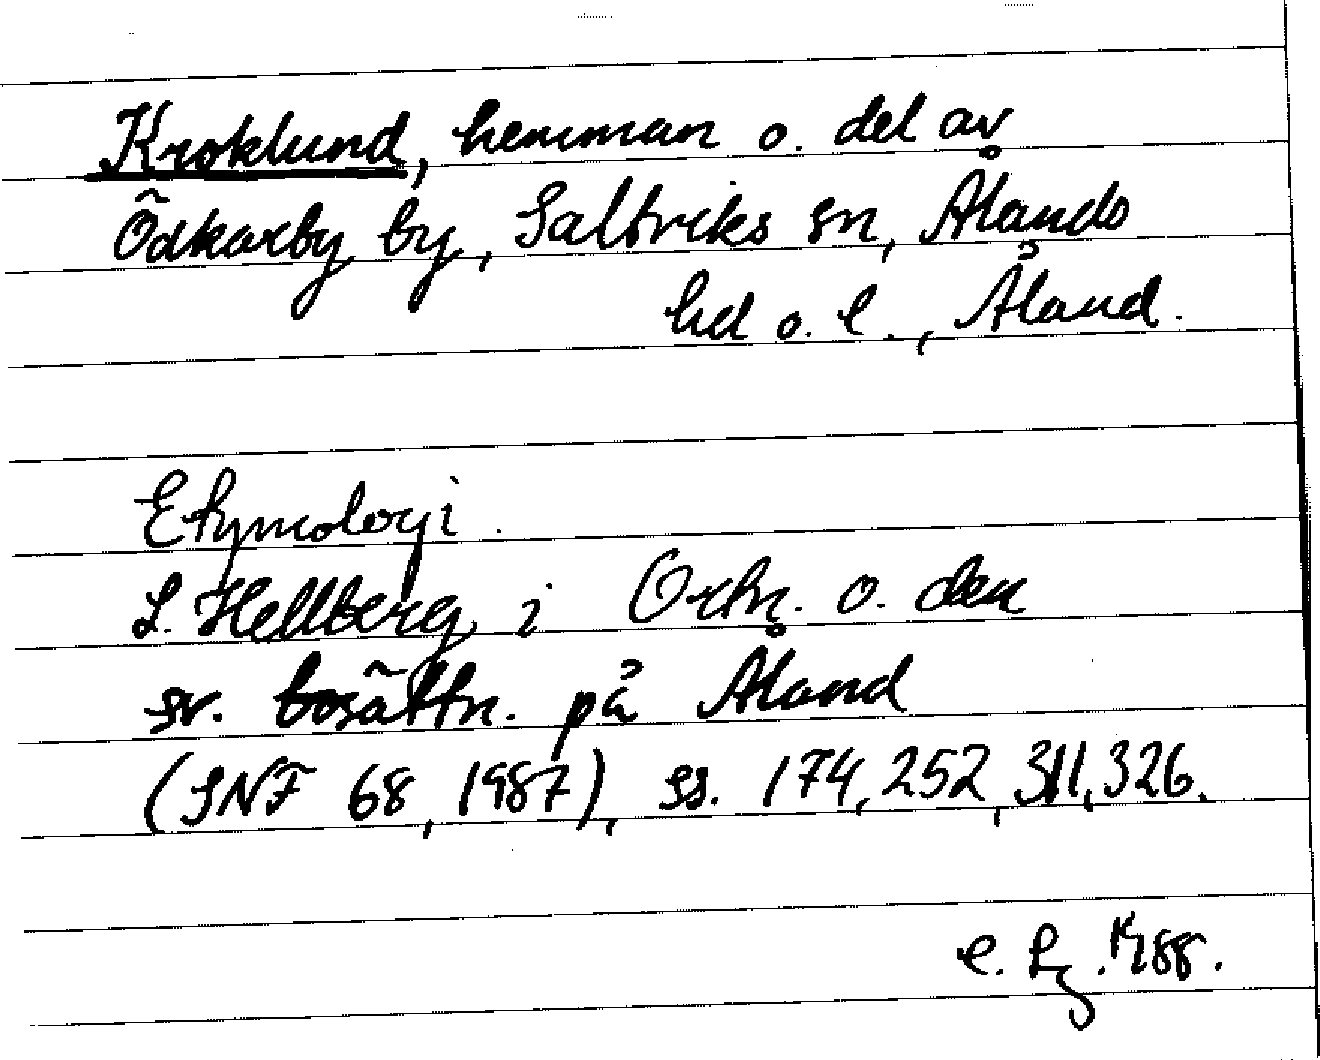 Kroklund, hemman o. del av
Ödkarby by, Saltviks sn, Ålands
hd o. l., Åland.
Etymologi.
L. Hellberg i Ortn. o. den
sv. bosättn. på Åland
(SNF 68, 1987), ss. 174, 252, 311, 326.